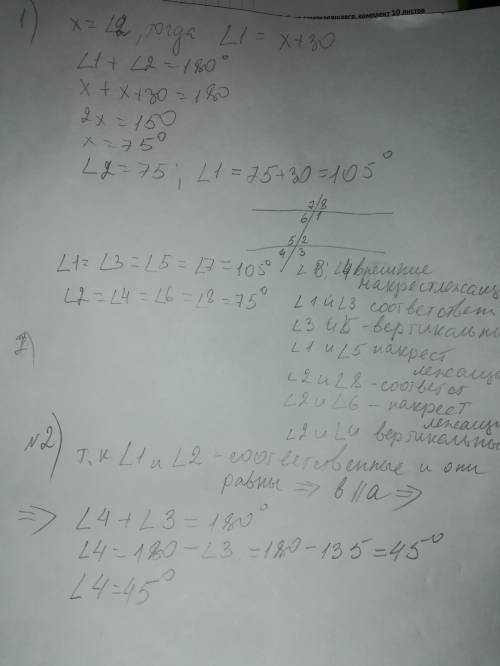 комплект 10 листов
1) x = ∠2, тогда ∠1 = x+30
∠1 + ∠2 = 180°
x + x+30 = 180
2x = 150
x = 75°
∠2 = 75; ∠1 = 75+30 = 105°
7 8
6 1
5 2
4 3
∠1 = ∠3 = ∠5 = ∠7 = 105°
∠2 = ∠4 = ∠6 = ∠8 = 75°
∠8; ∠4 внешние
накрестлежащ
∠1 и ∠3 соответствен
∠3 и 5 - вертикальн
∠1 и ∠5 накрест
лежащи
∠2 и ∠8 - соответст
∠2 и ∠6 - накрест
лежащи
∠2 и ∠4 вертикальны
2)
№2) т.к ∠1 и ∠2 - соответственные и они
равны ⇒ в || а ⇒
⇒ ∠4 + ∠3 = 180°
∠4 = 180 - ∠3 = 180 - 135 = 45°
∠4 = 45°